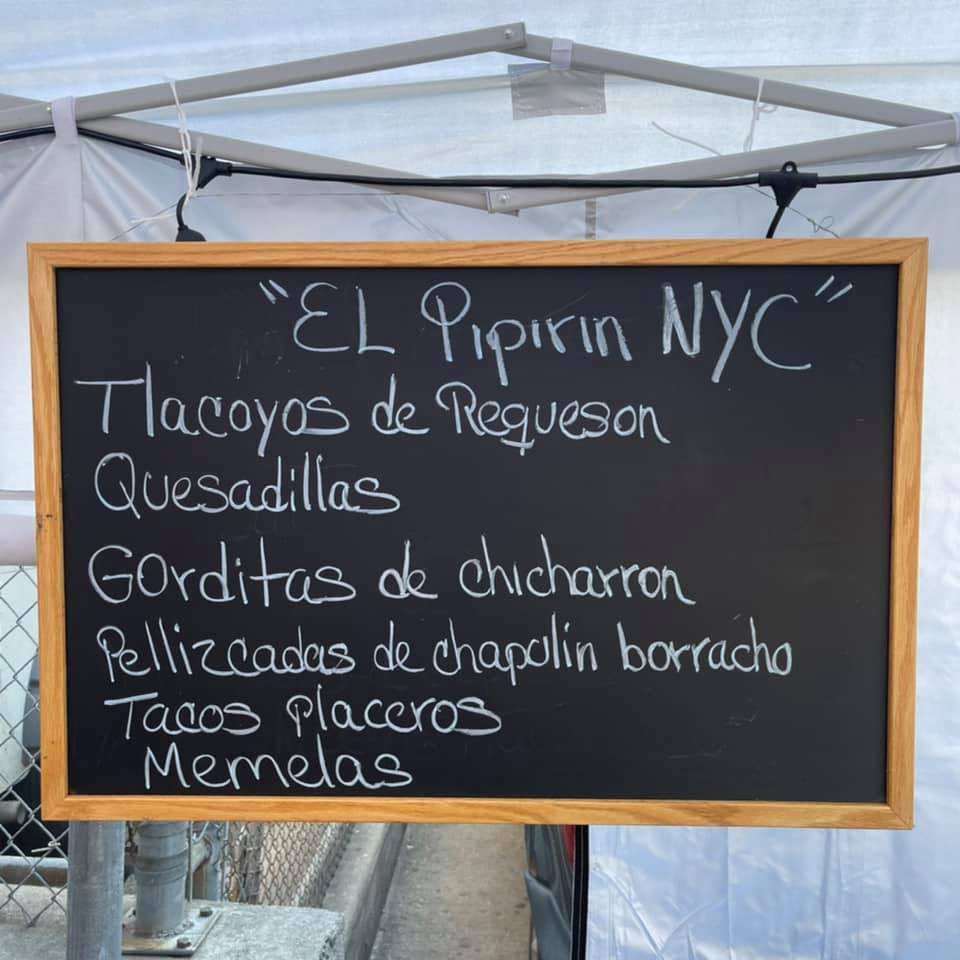 "EL Pipirin NYC"
Tlacoyos de Requeson
Quesadillas
Gorditas de chicharron
Pellizcadas de chapulin borracho
Tacos placeros
Memelas